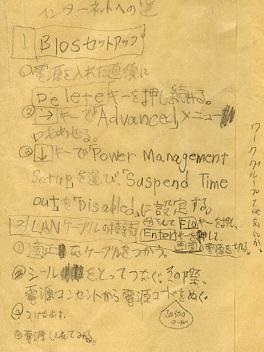 インターネットへの道
1 Biosセットアップ
①電源を入れた直後に
Deleteキーを押し続ける。
②→キーで「Advanced」メニュー
にあわせる。
③↓キーで「Power Management
Setup」を選び、「Suspend Time
out」を「Disabled」に設定する。
そしてF10キーを押し、
Enterキーを押して、
電源を切る。
2 LANケーブルの接続
①ケーブルをつかう。
②シールをとってつなぐ。その際、
電源コンセントから電源コードをぬく。
③つなげます。
④電源し入れてみる。
ワークグループ